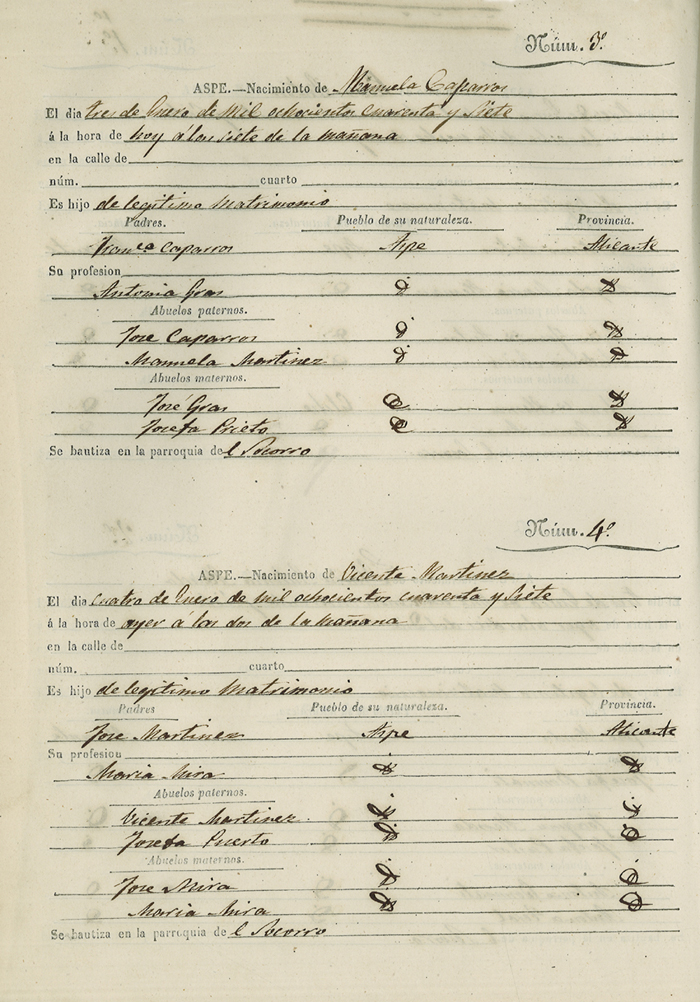 Núm. 3º
ASPE.—Nacimiento de Manuela Caparros
El dia tres de Enero de mil ochocientos cuarenta y siete
á la hora de hoy á las siete de la mañana
en la calle de
núm. cuarto
Es hijo de legitimo matrimonio
Padres. Pueblo de su naturaleza. Provincia.
Franco Caparros Aspe Alicante
Su profesion
Antonia Gras
Abuelos paternos.
Jose Caparros
Manuela Martinez
Abuelos maternos.
José Gras
Josefa Prieto
Se bautiza en la parroquia del Socorro
Núm. 4º
ASPE.—Nacimiento de Vicente Martinez
El dia cuatro de Enero de mil ochocientos cuarenta y siete
á la hora de ayer á las dos de la mañana
en la calle de
núm. cuarto
Es hijo de legitimo matrimonio
Padres Pueblo de su naturaleza. Provincia.
Jose Martinez Aspe Alicante
Su profesion
Maria Mira
Abuelos paternos.
Vicente Martinez
Josefa Puerto
Abuelos maternos.
Jose Mira
Maria Mira
Se bautiza en la parroquia de l Socorro